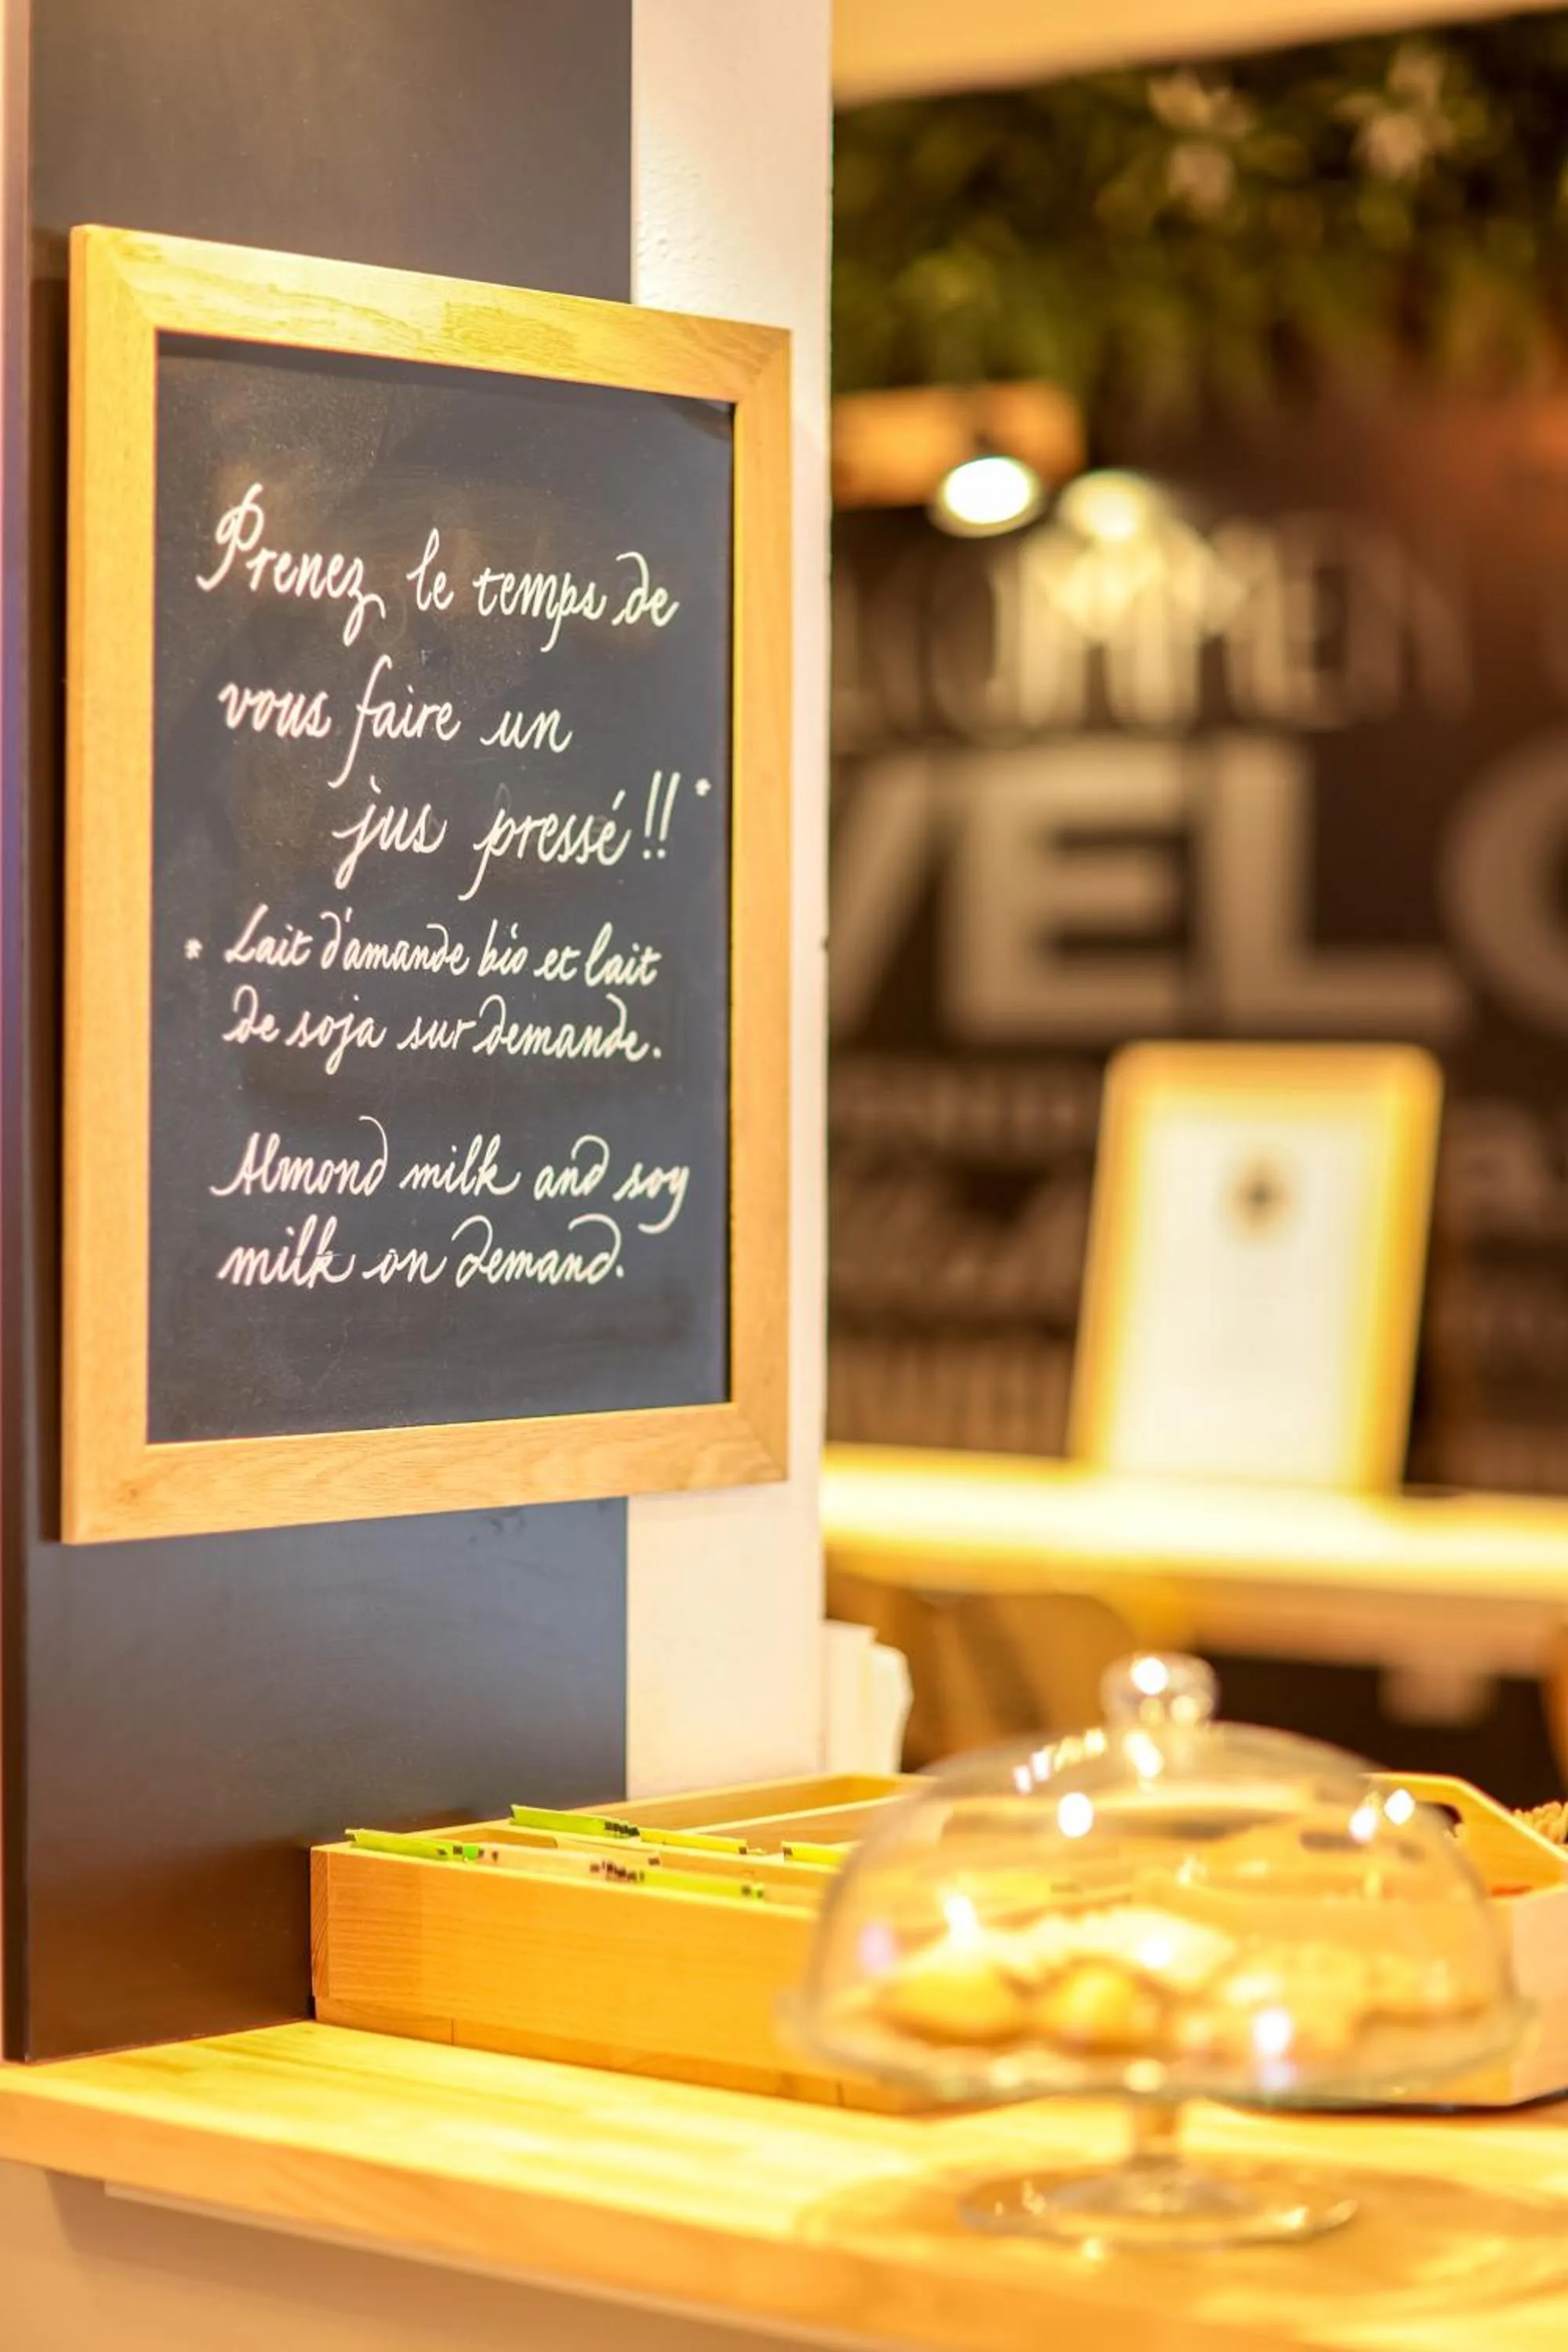 Prenez le temps de
vous faire un
jus pressé !! *
* Lait d'amande bio et lait
de soja sur demande.
Almond milk and soy
milk on demand.